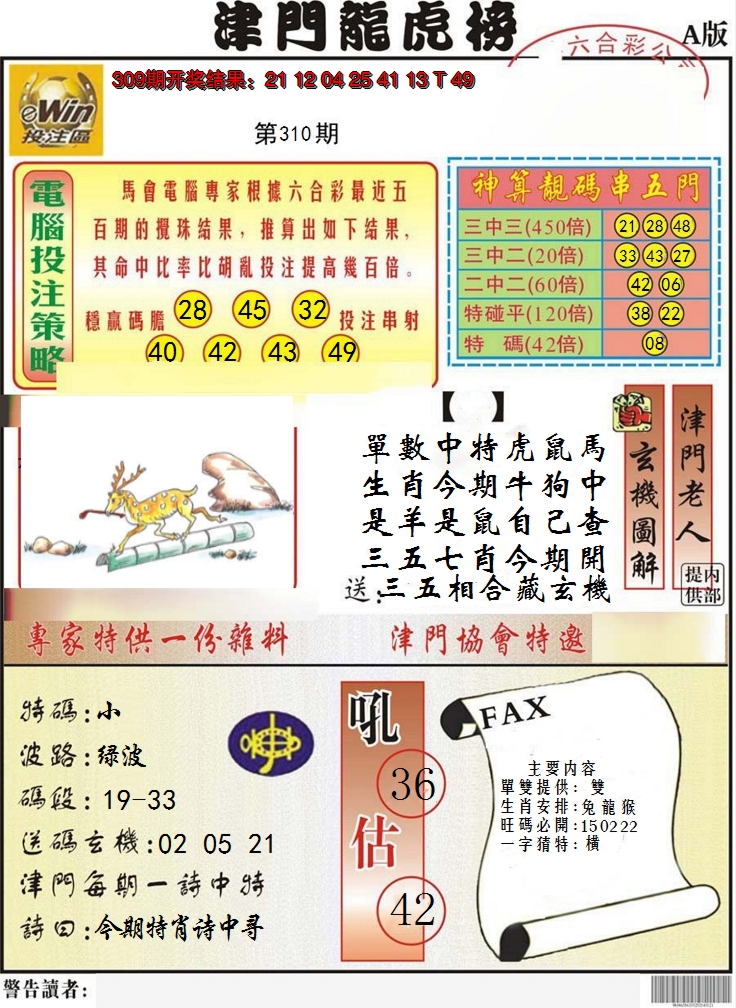 津門龍虎榜
A版
六合彩公
309期开奖结果：21 12 04 25 41 13 T 49
eWin
投注區
第310期
電腦投注策略
馬會電腦專家根據六合彩最近五
百期的攪珠结果，推算出如下结果，
其命中比率比胡亂投注提高幾百倍。
穩贏碼膽 28 45 32 投注串射
40 42 43 49
神算靚碼串五門
三中三(450倍) 21 28 48
三中二(20倍) 33 43 27
二中二(60倍) 42 06
特碰平(120倍) 38 22
特 碼(42倍) 08
【 】
單數中特虎鼠馬
生肖今期牛狗中
是羊是鼠自己查
三五七肖今期開
送:三五相合藏玄機
玄機圖解
津門老人
内部提供
專家特供一份雜料
津門協會特邀
特碼:小
波路:绿波
碼段:19-33
送碼玄機:02 05 21
津門每期一詩中特
詩曰:今期特肖诗中寻
吼
36
估
42
FAX
主要内容
單雙提供：雙
生肖安排:兔龍猴
旺碼必開:150222
一字猜特:橫
警告讀者: